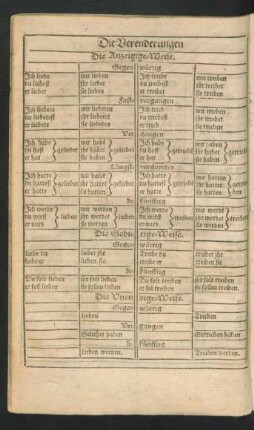 Die Verenderungen
Die Anzeigige/Weise.
Gegen wärtig.
Ich liebe wir lieben Ich treib wir treiben
du liebest ihr liebet du treibest ihr treibet
er liebet sie lieben er treibet sie treiben
Fast vergangen.
Ich liebete wir liebeten Ich trieb wir trieben
du liebetest ihr liebetet du triebest ihr triebet
er liebete sie liebeten er trieb sie trieben
Ver gangen
Ich habe wir haben Ich hab wir haben
du hast geliebet ihr habet geliebet du hast getrieben ihr habet getrieben
er hat sie haben er hat sie haben
Längst vergangen
Ich hatte wir hatten Ich hatte wir hatten
du hattest geliebet ihr hattet geliebet du hattest getrieben ihr hattet getrieben
er hatte sie hatten er hatte sie hatten
künfftig
Ich werde wir werden Ich werde wir werden
du werst lieben ihr werdet lieben du werst treiben ihr werdet treiben
er wird sie werden er wird sie werden
Gegen wärtig
liebe du liebet ihr Treibe du treibet ihr
liebe er lieben sie treibe er treiben sie
künfftig
Du solt lieben ihr solt lieben Du solt treiben ihr solt treiben
er soll lieben sie sollen lieben er sol treiben sie sollen treiben.
Gegen wärtig
lieben Treiben
Ver gangen
Geliebet haben Getrieben haben
künfftig
lieben werden. Treiben werden.